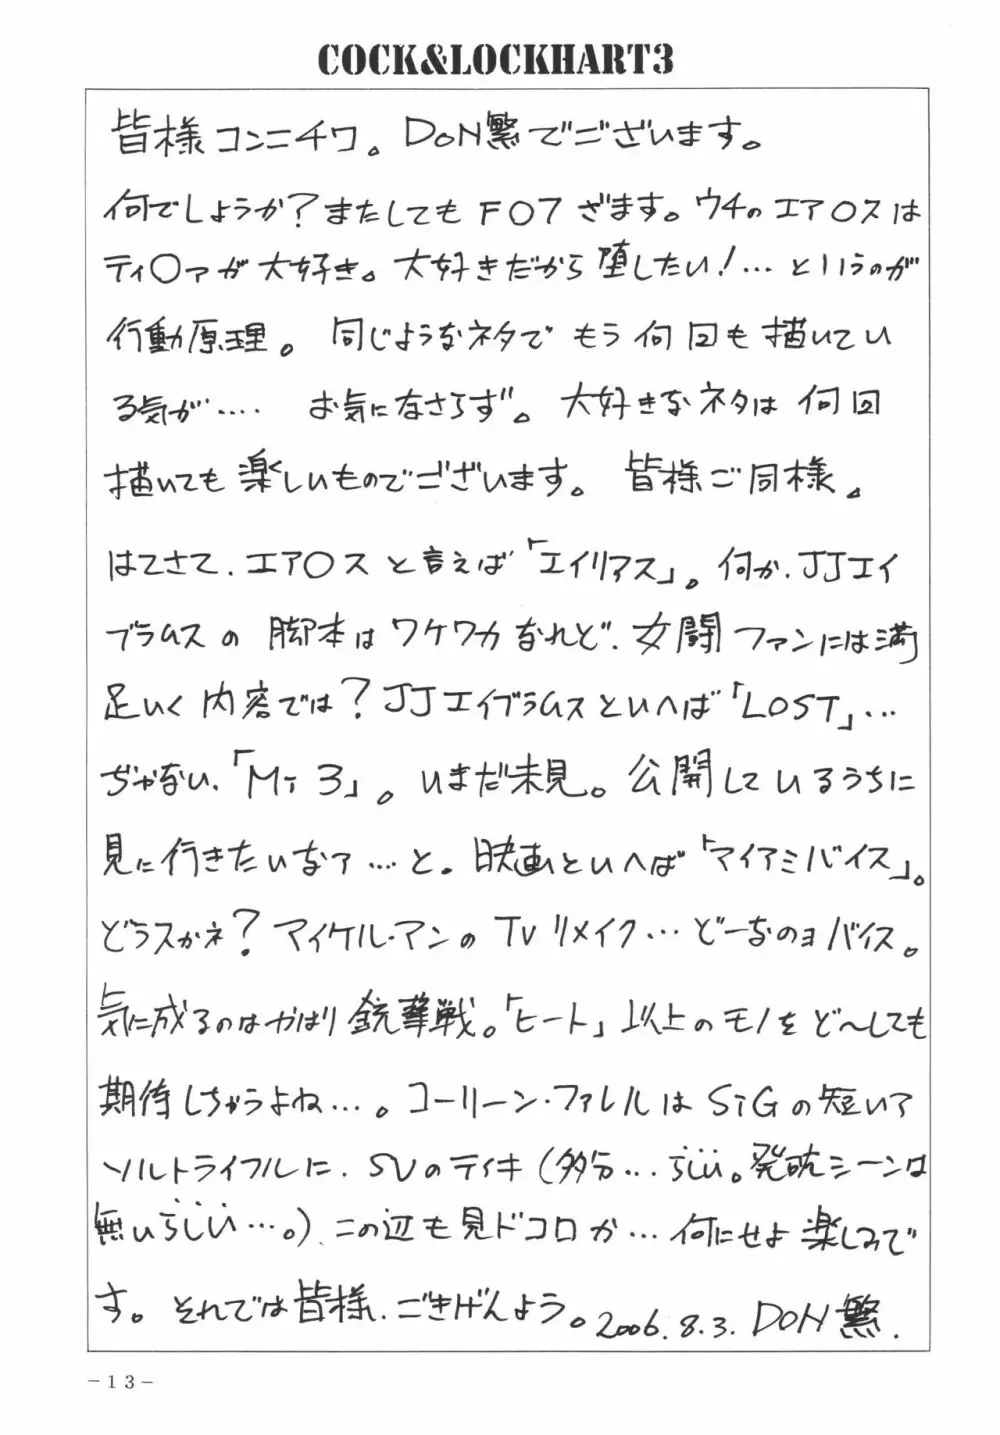 COCK&LOCKHART3
皆様コンニチワ。DON繁でございます。
何でしょうか？またしてもFO7ざます。ウチのエア○スは
ティ○ァが大好き。大好きだから堕したい！…というのが
行動原理。同じようなネタでもう何回も描いてい
る気が…. お気になさらず。大好きなネタは何回
描いても楽しいものでございます。皆様ご同様。
はてさて、エア○スと言えば「エイリアス」。何か、JJエイ
ブラムスの脚本はワケワカなれど、女闘ファンには満
足いく内容では？JJエイブラムスといへば「LOST」…
ぢゃない、「Mi3」。いまだ未見。公開しているうちに
見に行きたいなァ…と。映画といへば「マイアミバイス」。
どうスかネ？マイケル・マンのTVリメイク…どーなのョバイス。
気に成るのはやはり銃撃戦。「ヒート」以上のモノをど〜しても
期待しちゃうよね…。コーリーン・ファレルはSiGの短いア
ソルトライフルに、SVのティキ（多分…らしい。発砲シーンは
無いらしい…。）、この辺も見ドコロか…何にせよ楽しみで
す。それでは皆様、ごきげんよう。2006.8.3. DON繁.
－13－